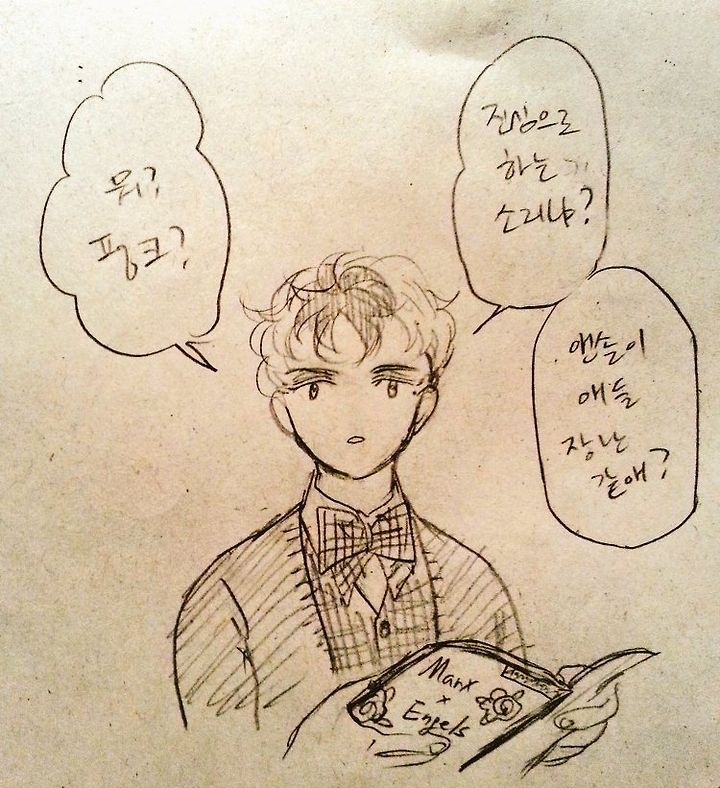 뭐?
펑크?
진심으로
하는
소리냐?
앤솔이
애들
장난
같애?
Marx
x
Engels